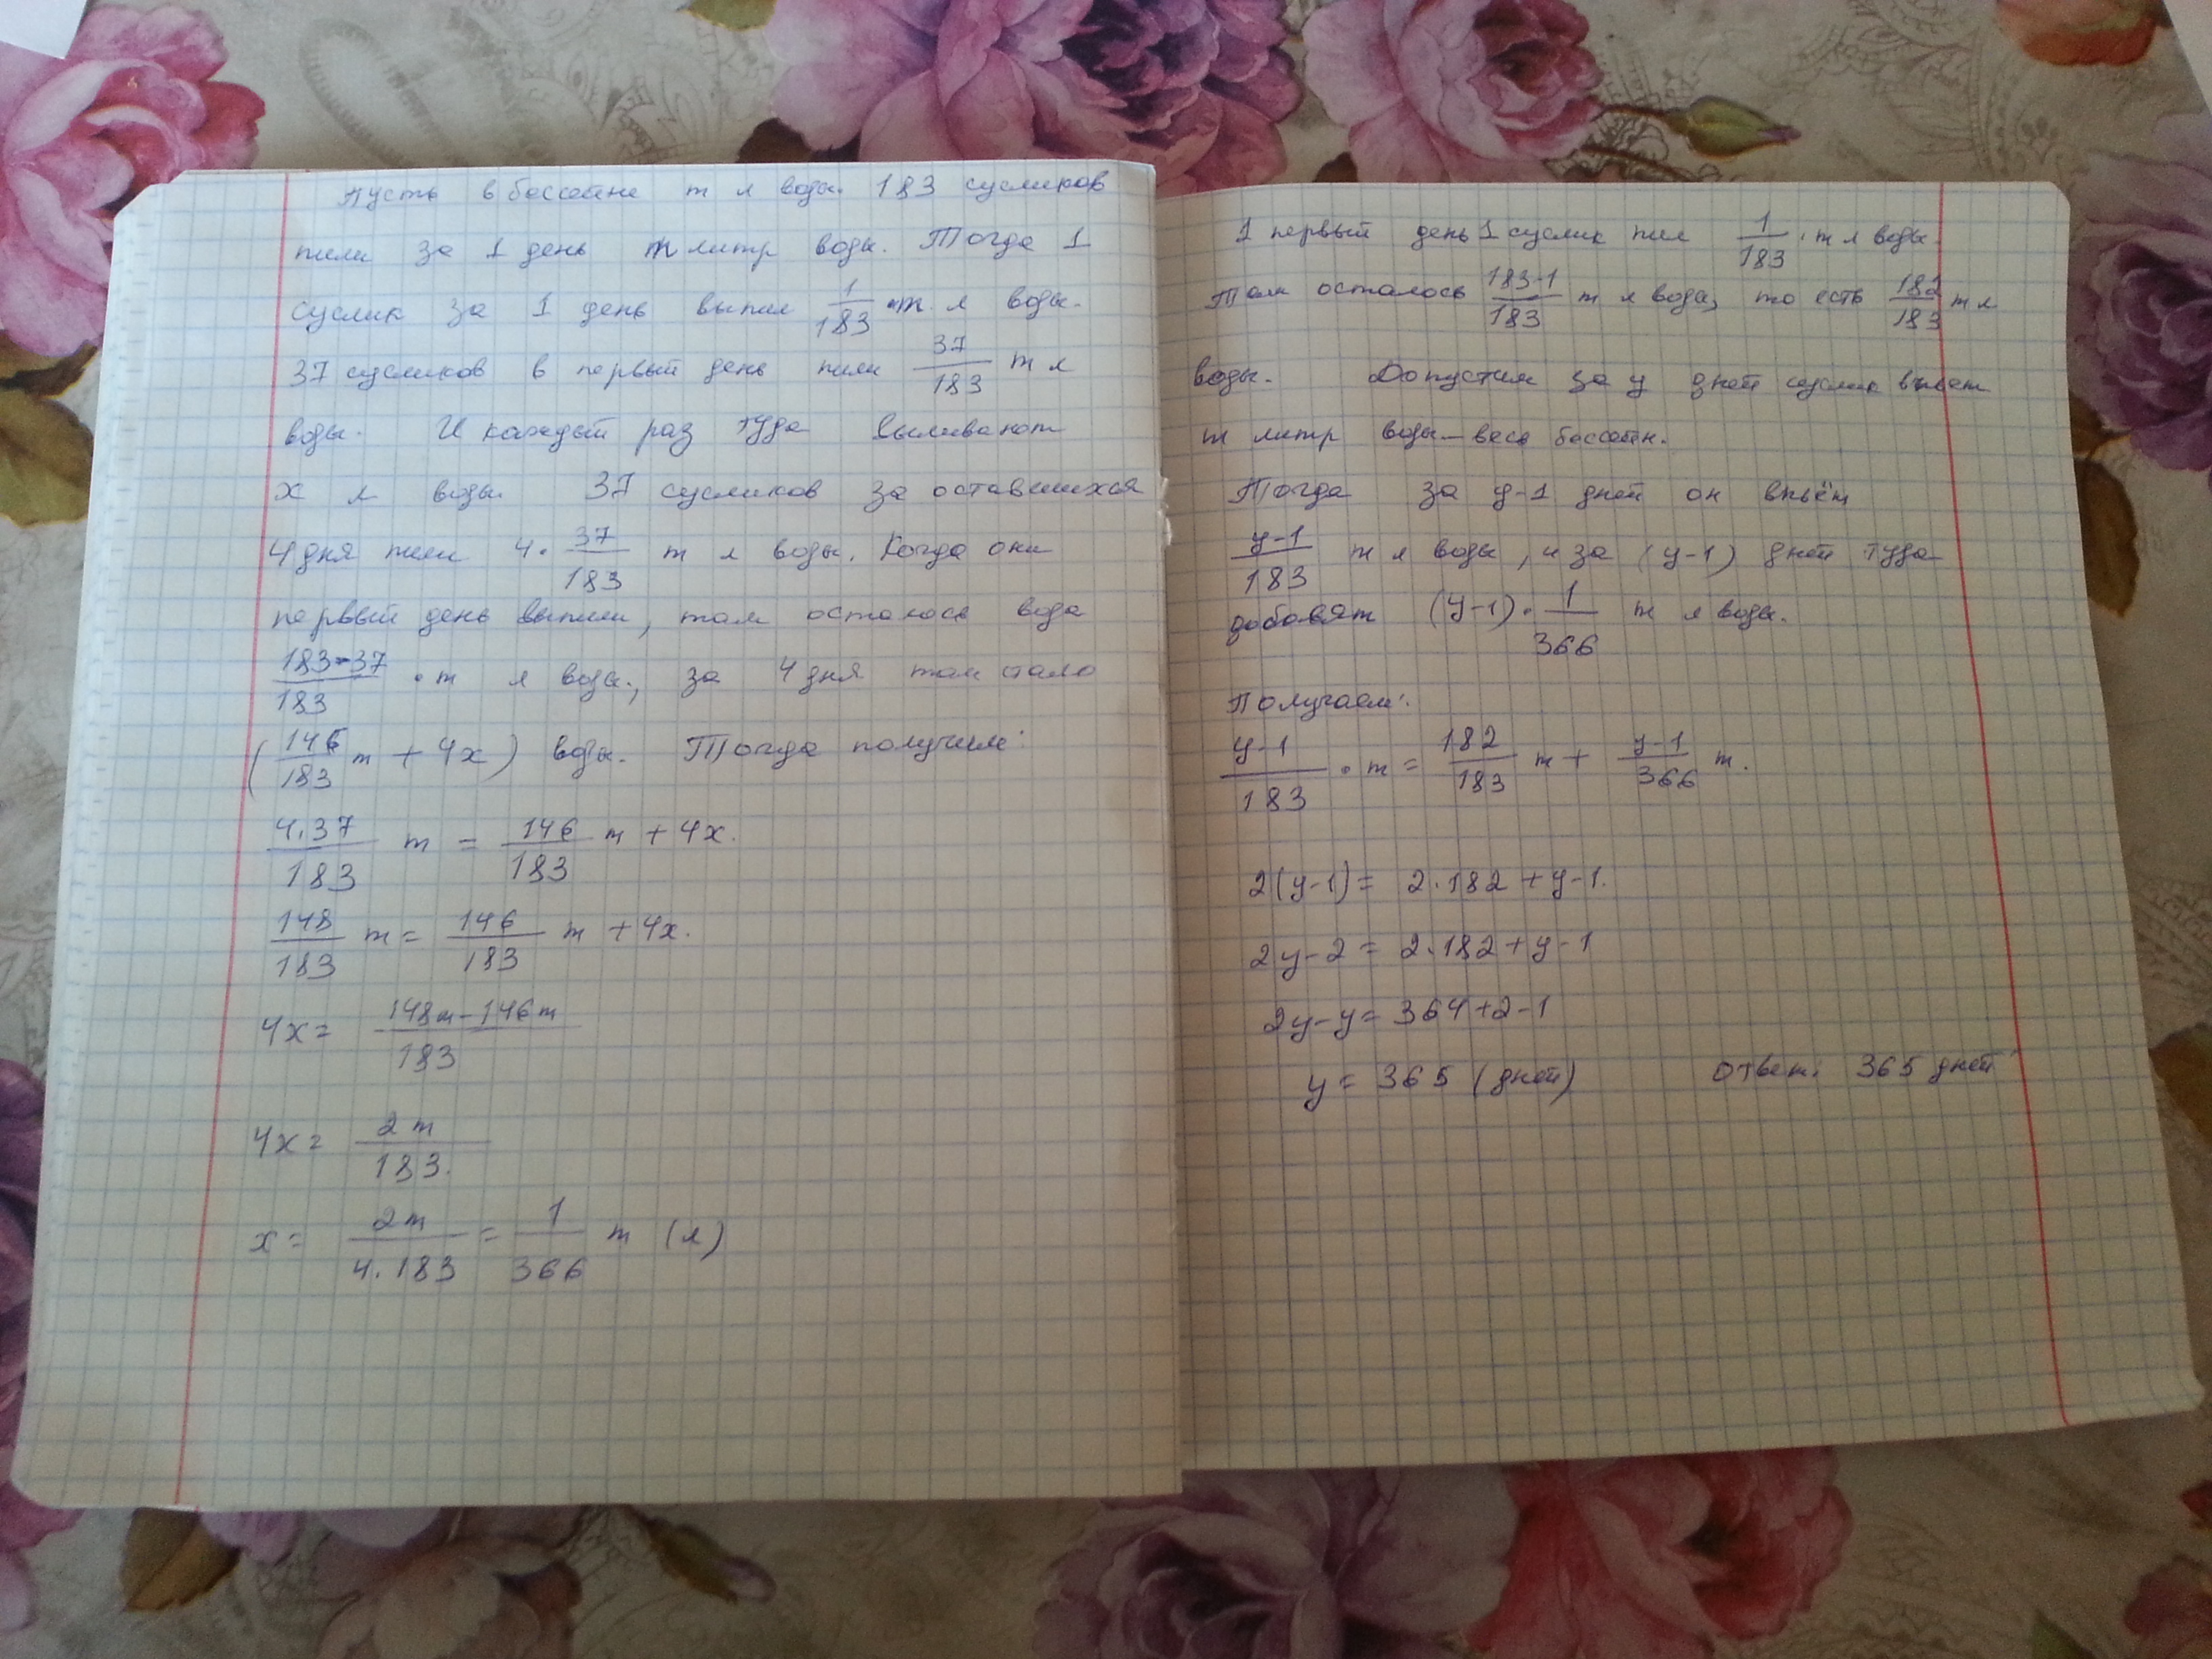 Пусть в бассейне m л воды. 183 сусликов
пили за 1 день m литр воды. Тогда 1
суслик за 1 день выпил 1/183 · m л воды.
37 сусликов в первый день пили 37/183 m л
воды. И каждый раз туда выливают
x л воды. 37 сусликов за оставшихся
4 дня пили 4 · 37/183 m л воды. Когда они
первый день выпили, там осталось вода
183-37/183 · m л воды, за 4 дня там стало
(146/183 m + 4x) воды. Тогда получим:
4.37/183 m = 146/183 m + 4x.
148/183 m = 146/183 m + 4x.
4x = 148m - 146m/183
4x = 2m/183.
x = 2m/4.183 = 1/366 m (л)
1 первый день 1 суслик пил 1/183 · m л воды.
Там осталось 183-1/183 m л воды, то есть 182/183 m л
воды. Допустим за y дней суслик выпьет
m литр воды - весь бассейн.
Тогда за y-1 дней он выпьёт
y-1/183 m л воды, и за (y-1) дней туда
добавят (y-1) · 1/366 m л воды.
Получаем:
y-1/183 · m = 182/183 m + y-1/366 m.
2(y-1) = 2.182 + y-1.
2y-2 = 2.182 + y-1
2y-y = 364+2-1
y = 365 (дней) Ответ: 365 дней